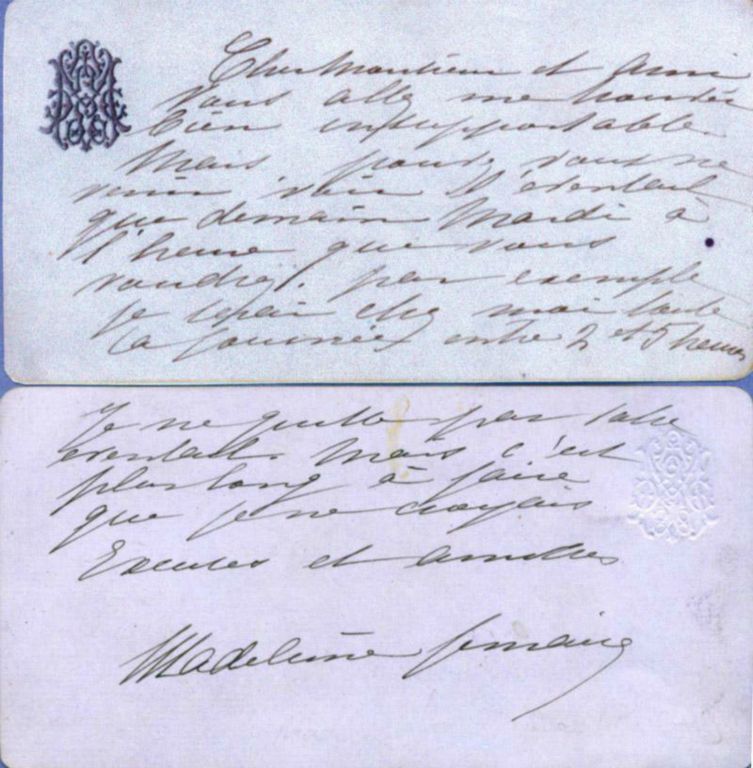 Cher Monsieur et ami
vous allez me trouver
bien insupportable.
Mais pouvez vous ne
venir voir l'éventail
que demain Mardi à
l'heure que vous
voudrez. par exemple
je serai chez moi toute
la journée, entre 2 et 5 heures
Je ne quitte pas
éventail. Mais c'est
plus long à faire
que je ne croyais
Excuses et amitiés
Madeleine Lemaire